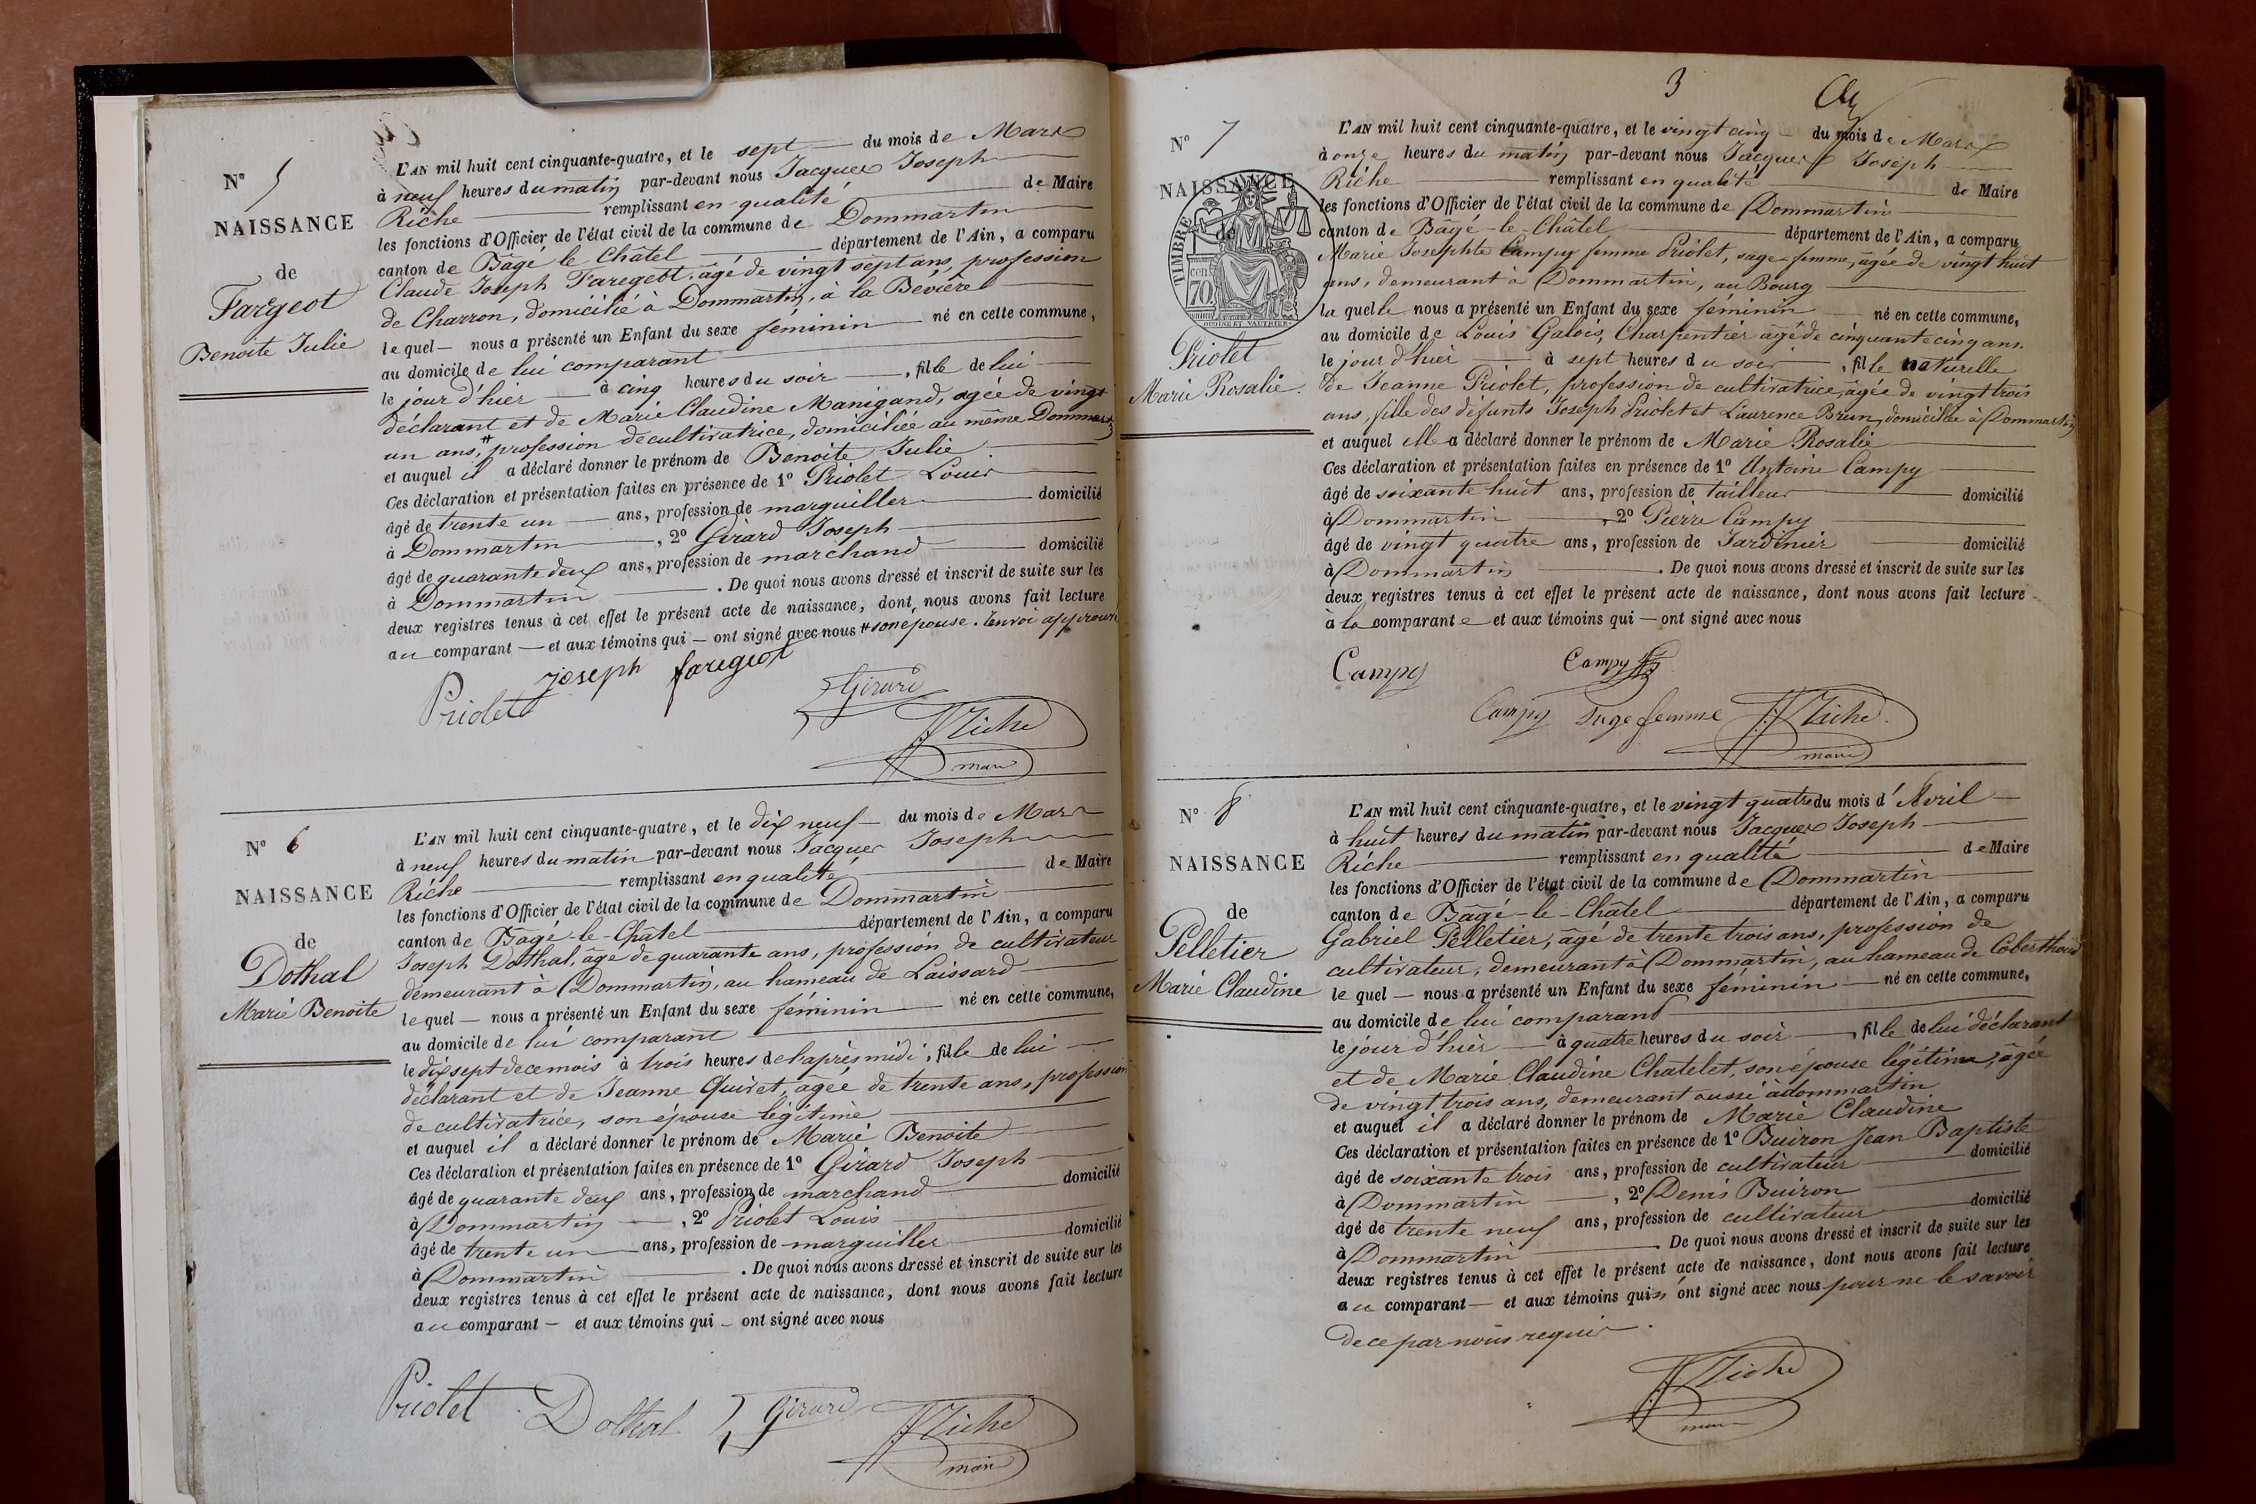 N° 5
NAISSANCE
de
Faregeot
Benoite Julie
L'AN mil huit cent cinquante-quatre, et le sept du mois de Mars
à neuf heures du matin par-devant nous Jacques Joseph
Riche remplissant en qualité de Maire
les fonctions d'Officier de l'état civil de la commune de Dommartin
canton de Bâgé le Châtel département de l'Ain, a comparu
Claude Joseph Faregeot, âgé de vingt sept ans, profession
de Charron, domicilié à Dommartin, à la Bévière
le quel nous a présenté un Enfant du sexe féminin né en cette commune,
au domicile de lui comparant
le jour d'hier à cinq heures du soir, fille de lui
déclarant et de Marie Claudine Manigand, agée de vingt
un ans, # profession de cultivatrice, domiciliée au même Dommartin
et auquel il a déclaré donner le prénom de Benoite Julie
Ces déclaration et présentation faites en présence de 1° Priolet Louis
âgé de trente un ans, profession de marguiller domicilié
à Dommartin, 2° Girard Joseph
âgé de quarante deux ans, profession de marchand domicilié
à Dommartin. De quoi nous avons dressé et inscrit de suite sur les
deux registres tenus à cet effet le présent acte de naissance, dont nous avons fait lecture
au comparant et aux témoins qui ont signé avec nous # son épouse. renvoi approuvé
Joseph faregeot
Priolet Girard
JJ Riche
maire
N° 6
NAISSANCE
de
Dothal
Marie Benoite
L'AN mil huit cent cinquante-quatre, et le dix neuf du mois de Mars
à neuf heures du matin par-devant nous Jacques Joseph
Riche remplissant en qualité de Maire
les fonctions d'Officier de l'état civil de la commune de Dommartin
canton de Bâgé-le-Châtel département de l'Ain, a comparu
Joseph Dothal, âgé de quarante ans, profession de cultivateur
demeurant à Dommartin, au hameau de Laissard
le quel nous a présenté un Enfant du sexe féminin né en cette commune,
au domicile de lui comparant
le dix sept de ce mois à trois heures de l'après midi, fille de lui
déclarant et de Jeanne Quivet, âgée de trente ans, profession
de cultivatrice, son épouse légitime
et auquel il a déclaré donner le prénom de Marie Benoite
Ces déclaration et présentation faites en présence de 1° Girard Joseph
âgé de quarante deux ans, profession de marchand domicilié
à Dommartin, 2° Priolet Louis
âgé de trente un ans, profession de marguiller domicilié
à Dommartin. De quoi nous avons dressé et inscrit de suite sur les
deux registres tenus à cet effet le présent acte de naissance, dont nous avons fait lecture
au comparant et aux témoins qui ont signé avec nous
Priolet Dothal Girard JJ Riche
maire
3
N° 7
NAISSANCE
de
TIMBRE
70
Priolet
Marie Rosalie.
L'AN mil huit cent cinquante-quatre, et le vingt cinq du mois de Mars
à onze heures du matin par-devant nous Jacques Joseph
Riche remplissant en qualité de Maire
les fonctions d'Officier de l'état civil de la commune de Dommartin
canton de Bâgé-le-Châtel département de l'Ain, a comparu
Marie Josephte Campy femme Priolet, sage-femme, âgée de vingt huit
ans, demeurant à Dommartin, au Bourg
la quelle nous a présenté un Enfant du sexe féminin né en cette commune,
au domicile de Louis Galois, Charpentier âgé de cinquante cinq ans.
le jour d'hier à sept heures du soir, fille naturelle
de Jeanne Priolet, profession de cultivatrice, âgée de vingt trois
ans, fille des défunts Joseph Priolet et Laurence Brun, domiciliée à Dommartin
et auquel elle a déclaré donner le prénom de Marie Rosalie
Ces déclaration et présentation faites en présence de 1° Antoine Campy
âgé de soixante huit ans, profession de tailleur domicilié
à Dommartin, 2° Pierre Campy
âgé de vingt quatre ans, profession de Jardinier domicilié
à Dommartin. De quoi nous avons dressé et inscrit de suite sur les
deux registres tenus à cet effet le présent acte de naissance, dont nous avons fait lecture
à la comparante et aux témoins qui ont signé avec nous
Campy Campy
Campy Sage femme JJ Riche
maire
N° 8
NAISSANCE
de
Pelletier
Marie Claudine
L'AN mil huit cent cinquante-quatre, et le vingt quatre du mois d'Avril
à huit heures du matin par-devant nous Jacques Joseph
Riche remplissant en qualité de Maire
les fonctions d'Officier de l'état civil de la commune de Dommartin
canton de Bâgé-le-Châtel département de l'Ain, a comparu
Gabriel Pelletier, âgé de trente trois ans, profession de
cultivateur, demeurant à Dommartin, au hameau de Coberthoud
le quel nous a présenté un Enfant du sexe féminin né en cette commune,
au domicile de lui comparant
le jour d'hier à quatre heures du soir, fille de lui déclarant
et de Marie Claudine Chatelet, son épouse légitime, âgée
de vingt trois ans, demeurant aussi à dommartin
et auquel il a déclaré donner le prénom de Marie Claudine
Ces déclaration et présentation faites en présence de 1° Buiron Jean Baptiste
âgé de soixante trois ans, profession de cultivateur domicilié
à Dommartin, 2° Denis Buiron
âgé de trente neuf ans, profession de cultivateur domicilié
à Dommartin. De quoi nous avons dressé et inscrit de suite sur les
deux registres tenus à cet effet le présent acte de naissance, dont nous avons fait lecture
au comparant et aux témoins qui n'ont signé avec nous pour ne le savoir
de ce par nous requis.
JJ Riche
maire